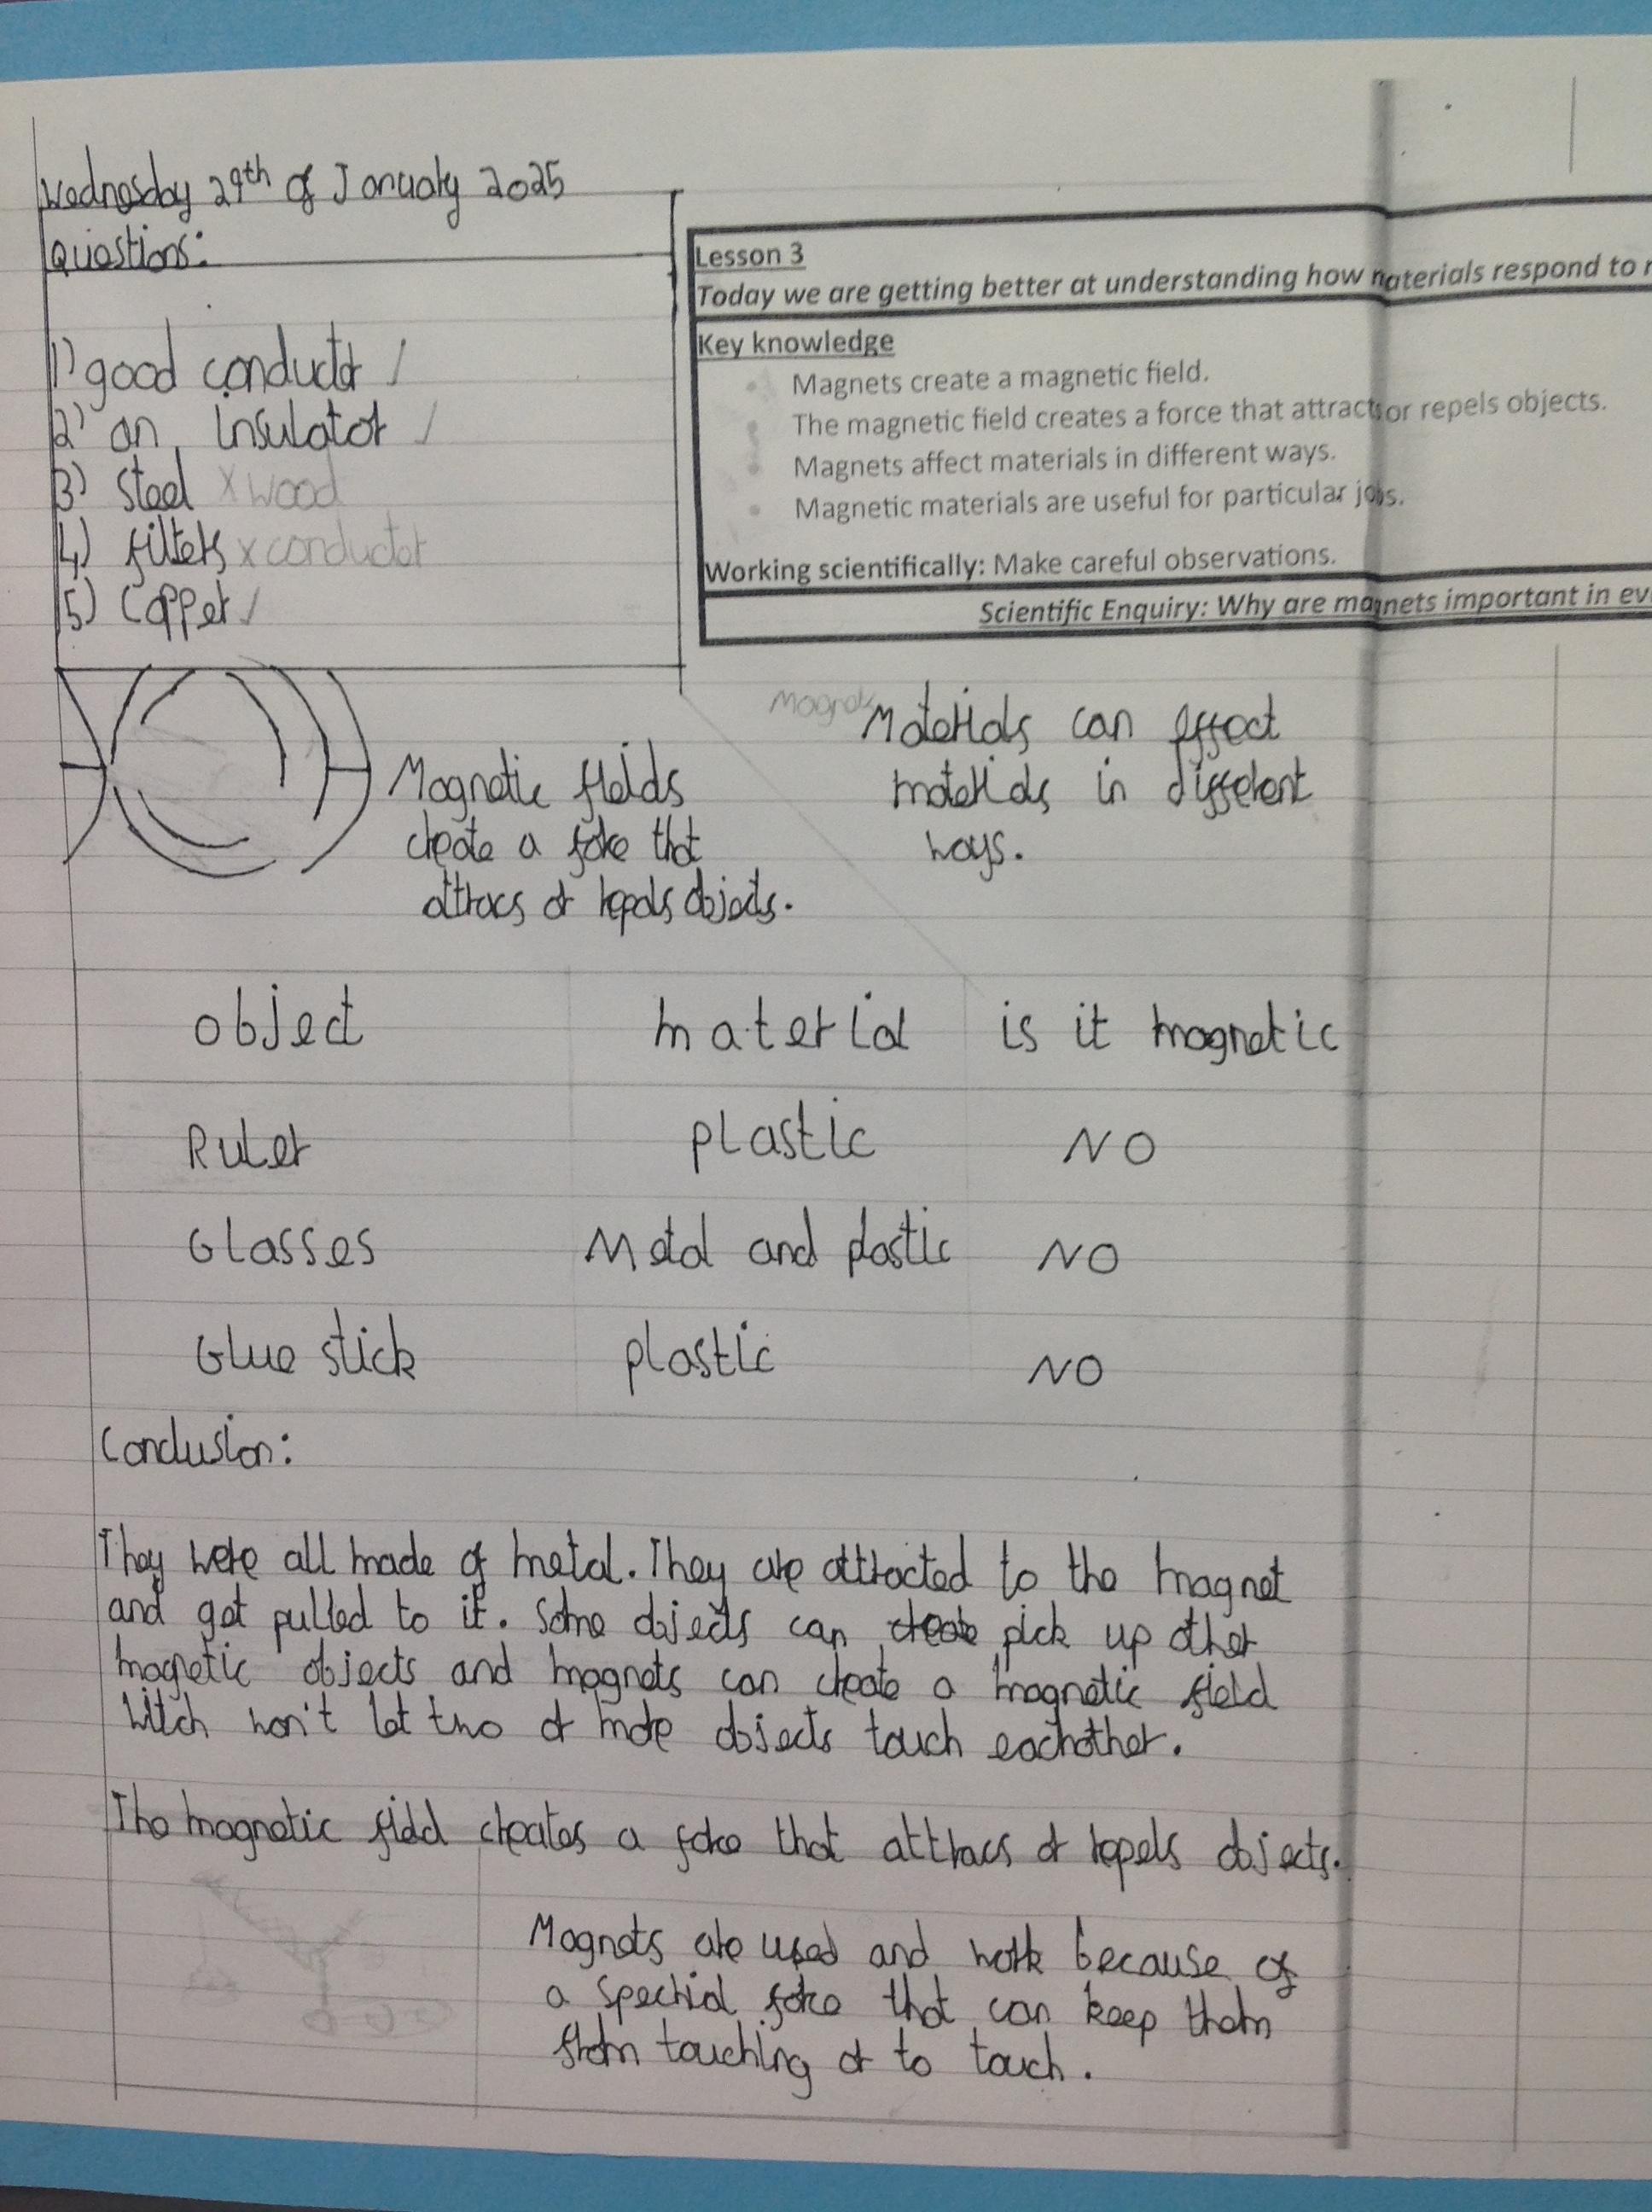 Wednesday 29th of January 2025
Questions:
1) good conductor /
2) an insulator /
3) Steel x wood
4) filters x conductor
5) Copper /
Lesson 3
Today we are getting better at understanding how materials respond to
Key knowledge
Magnets create a magnetic field.
The magnetic field creates a force that attracts or repels objects.
Magnets affect materials in different ways.
Magnetic materials are useful for particular jobs.
Working scientifically: Make careful observations.
Scientific Enquiry: Why are magnets important in
Magnetic fields
create a force that
attracs or repels objects.
Materials can effect
materials in different
ways.
object material is it magnetic
Ruler plastic NO
Glasses Metal and plastic NO
Glue stick plastic NO
Conclusion:
They were all made of metal. They are attracted to the magnet
and got pulled to it. Some objects can create pick up other
magnetic objects and magnets can create a magnetic field
witch won't let two or more objects touch eachother.
The magnetic field creates a force that attracs or repels objects.
Magnets are used and work because of
a spechial force that can keep them
from touching or to touch.